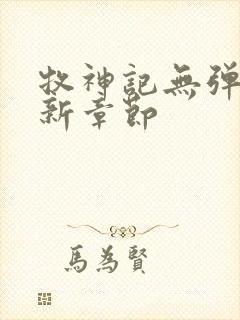 牧神記無彈
新章節
馬為賢